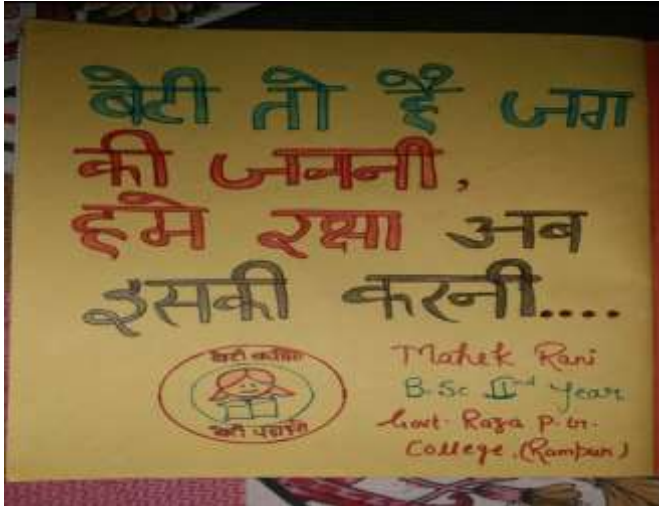 बेटी तो है जग
की जननी,
हमे रक्षा अब
इसकी करनी....
बेटी बचाओ
बेटी पढ़ाओ
Mahek Rani
B.Sc IInd Year
Govt. Raza P.G.
College, (Rampur)